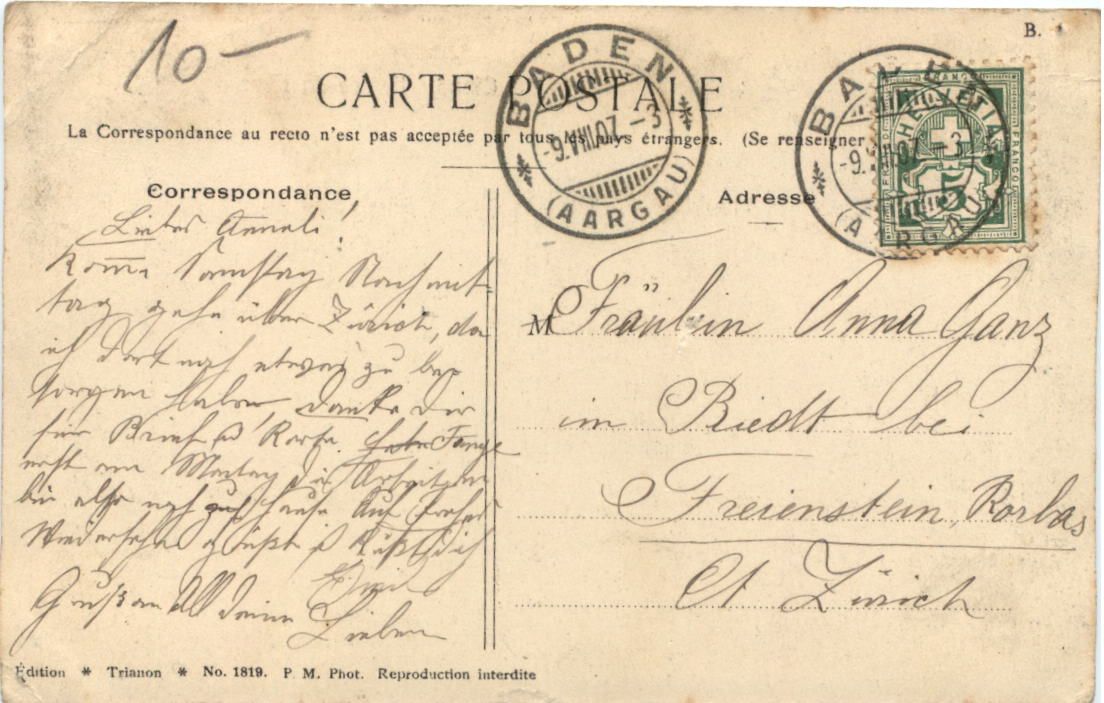 10 —
B.
CARTE POSTALE
La Correspondance au recto n'est pas acceptée par tous les pays étrangers. (Se renseigner
BADEN
-9.VIII.07.-3
(AARGAU)
BADEN
-9.VIII.07.-3
(AARGAU)
HELVETIA
FRANCO
5
Correspondance
Liebes Anneli!
Komme Samstag Nachmit-
tag gehe über Zürich, da
ich dort noch etwas zu be-
sorgen habe danke Dir
für Brief u Karte. Fange
erst am Montag die Arbeit an
bin also noch zuhause Auf frohes
Wiedersehen grüßt u küßt Dich
Emil
Gruß an All deine
Lieben
Adresse
M Fräulein Anna Ganz
im Riedt bei
Freienstein, Rorbas
Ct. Zürich
Édition * Trianon * No. 1819. P. M. Phot. Reproduction interdite